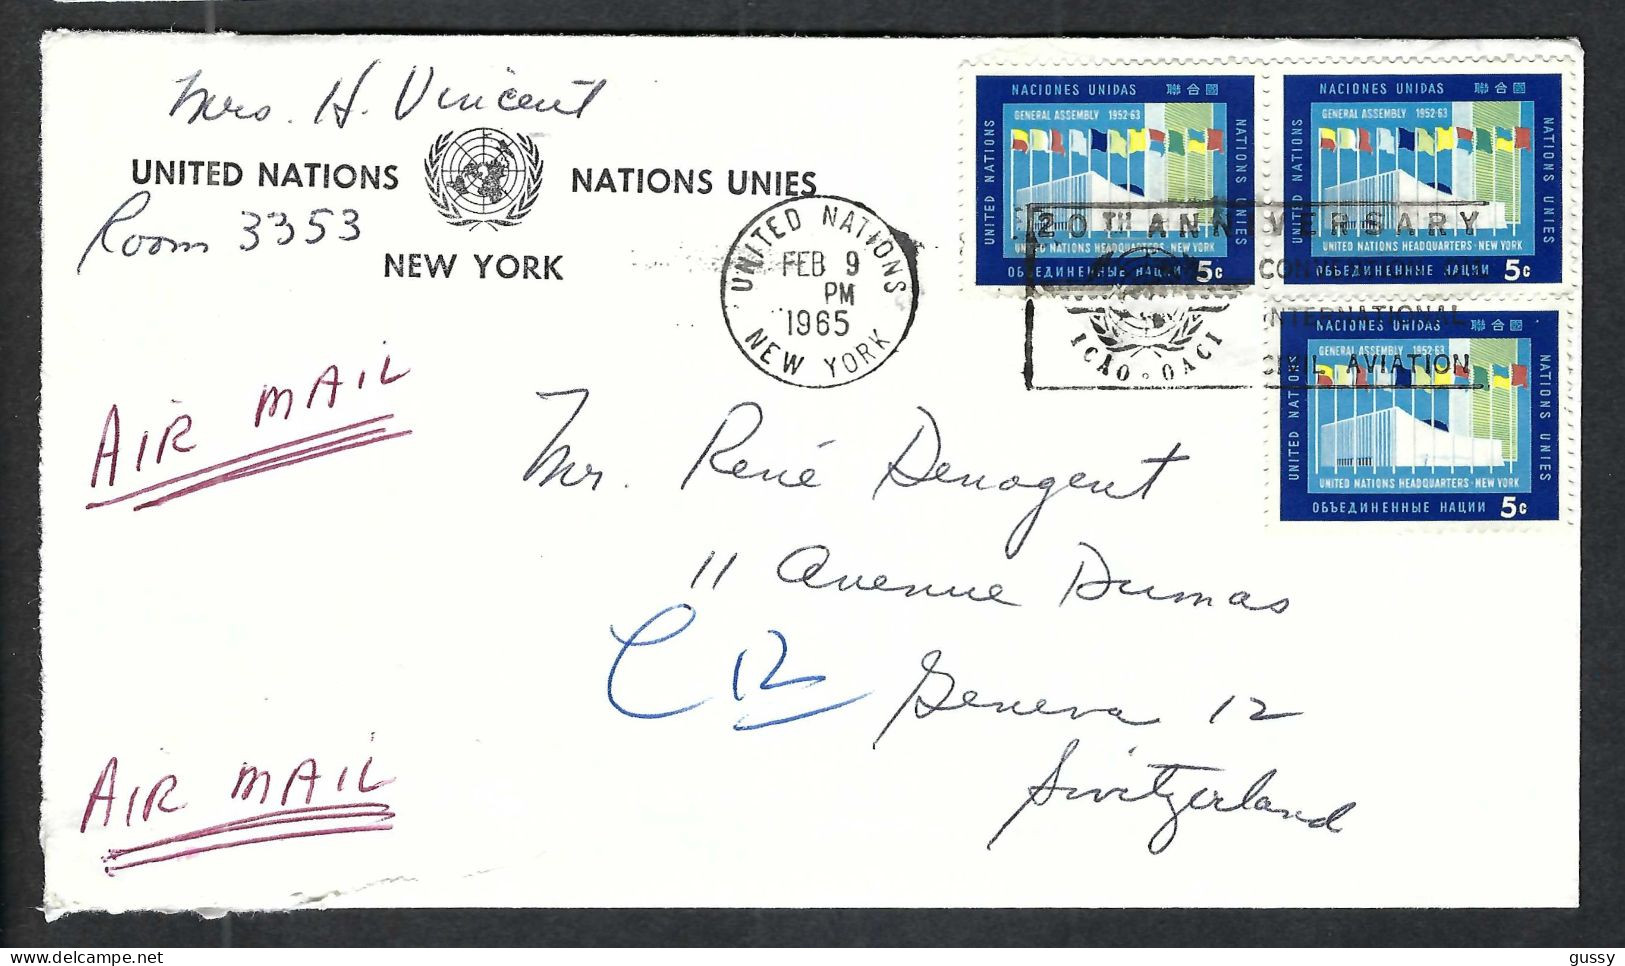 Mrs. H. Vincent
UNITED NATIONS NATIONS UNIES
Room 3353
NEW YORK
UNITED NATIONS
FEB 9
PM
1965
NEW YORK
NACIONES UNIDAS 聯合國
GENERAL ASSEMBLY 1952-63
UNITED NATIONS
NATIONS UNIES
UNITED NATIONS HEADQUARTERS · NEW YORK
ОБЪЕДИНЕННЫЕ НАЦИИ 5c
NACIONES UNIDAS 聯合國
GENERAL ASSEMBLY 1952-63
UNITED NATIONS
NATIONS UNIES
UNITED NATIONS HEADQUARTERS · NEW YORK
ОБЪЕДИНЕННЫЕ НАЦИИ 5c
NACIONES UNIDAS 聯合國
GENERAL ASSEMBLY 1952-63
UNITED NATIONS
NATIONS UNIES
UNITED NATIONS HEADQUARTERS · NEW YORK
ОБЪЕДИНЕННЫЕ НАЦИИ 5c
20TH ANNIVERSARY
CONVENTION ON
INTERNATIONAL
CIVIL AVIATION
ICAO · OACI
AIR MAIL
Mr. René Denogent
11 Avenue Dumas
C 12
Geneva 12
Switzerland
AIR MAIL
gussy
delcampe.net